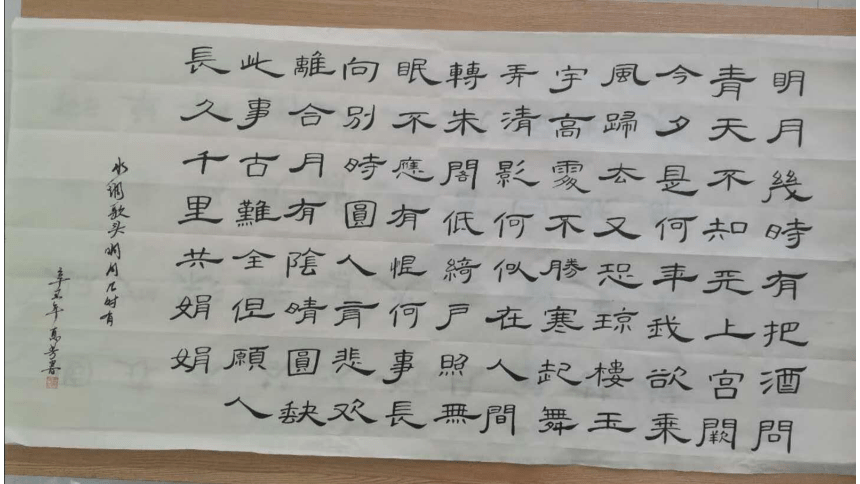 明月幾時有把酒問
青天不知天上宮闕
今夕是何年我欲乘
風歸去又恐琼樓玉
宇高處不勝寒起舞
弄清影何似在人間
轉朱閣低綺戶照無
眠不應有恨何事長
向別時圓人有悲欢
離合月有陰晴圓缺
此事古難全但願人
長久千里共娟娟
水调歌头 明月几时有
辛丑年